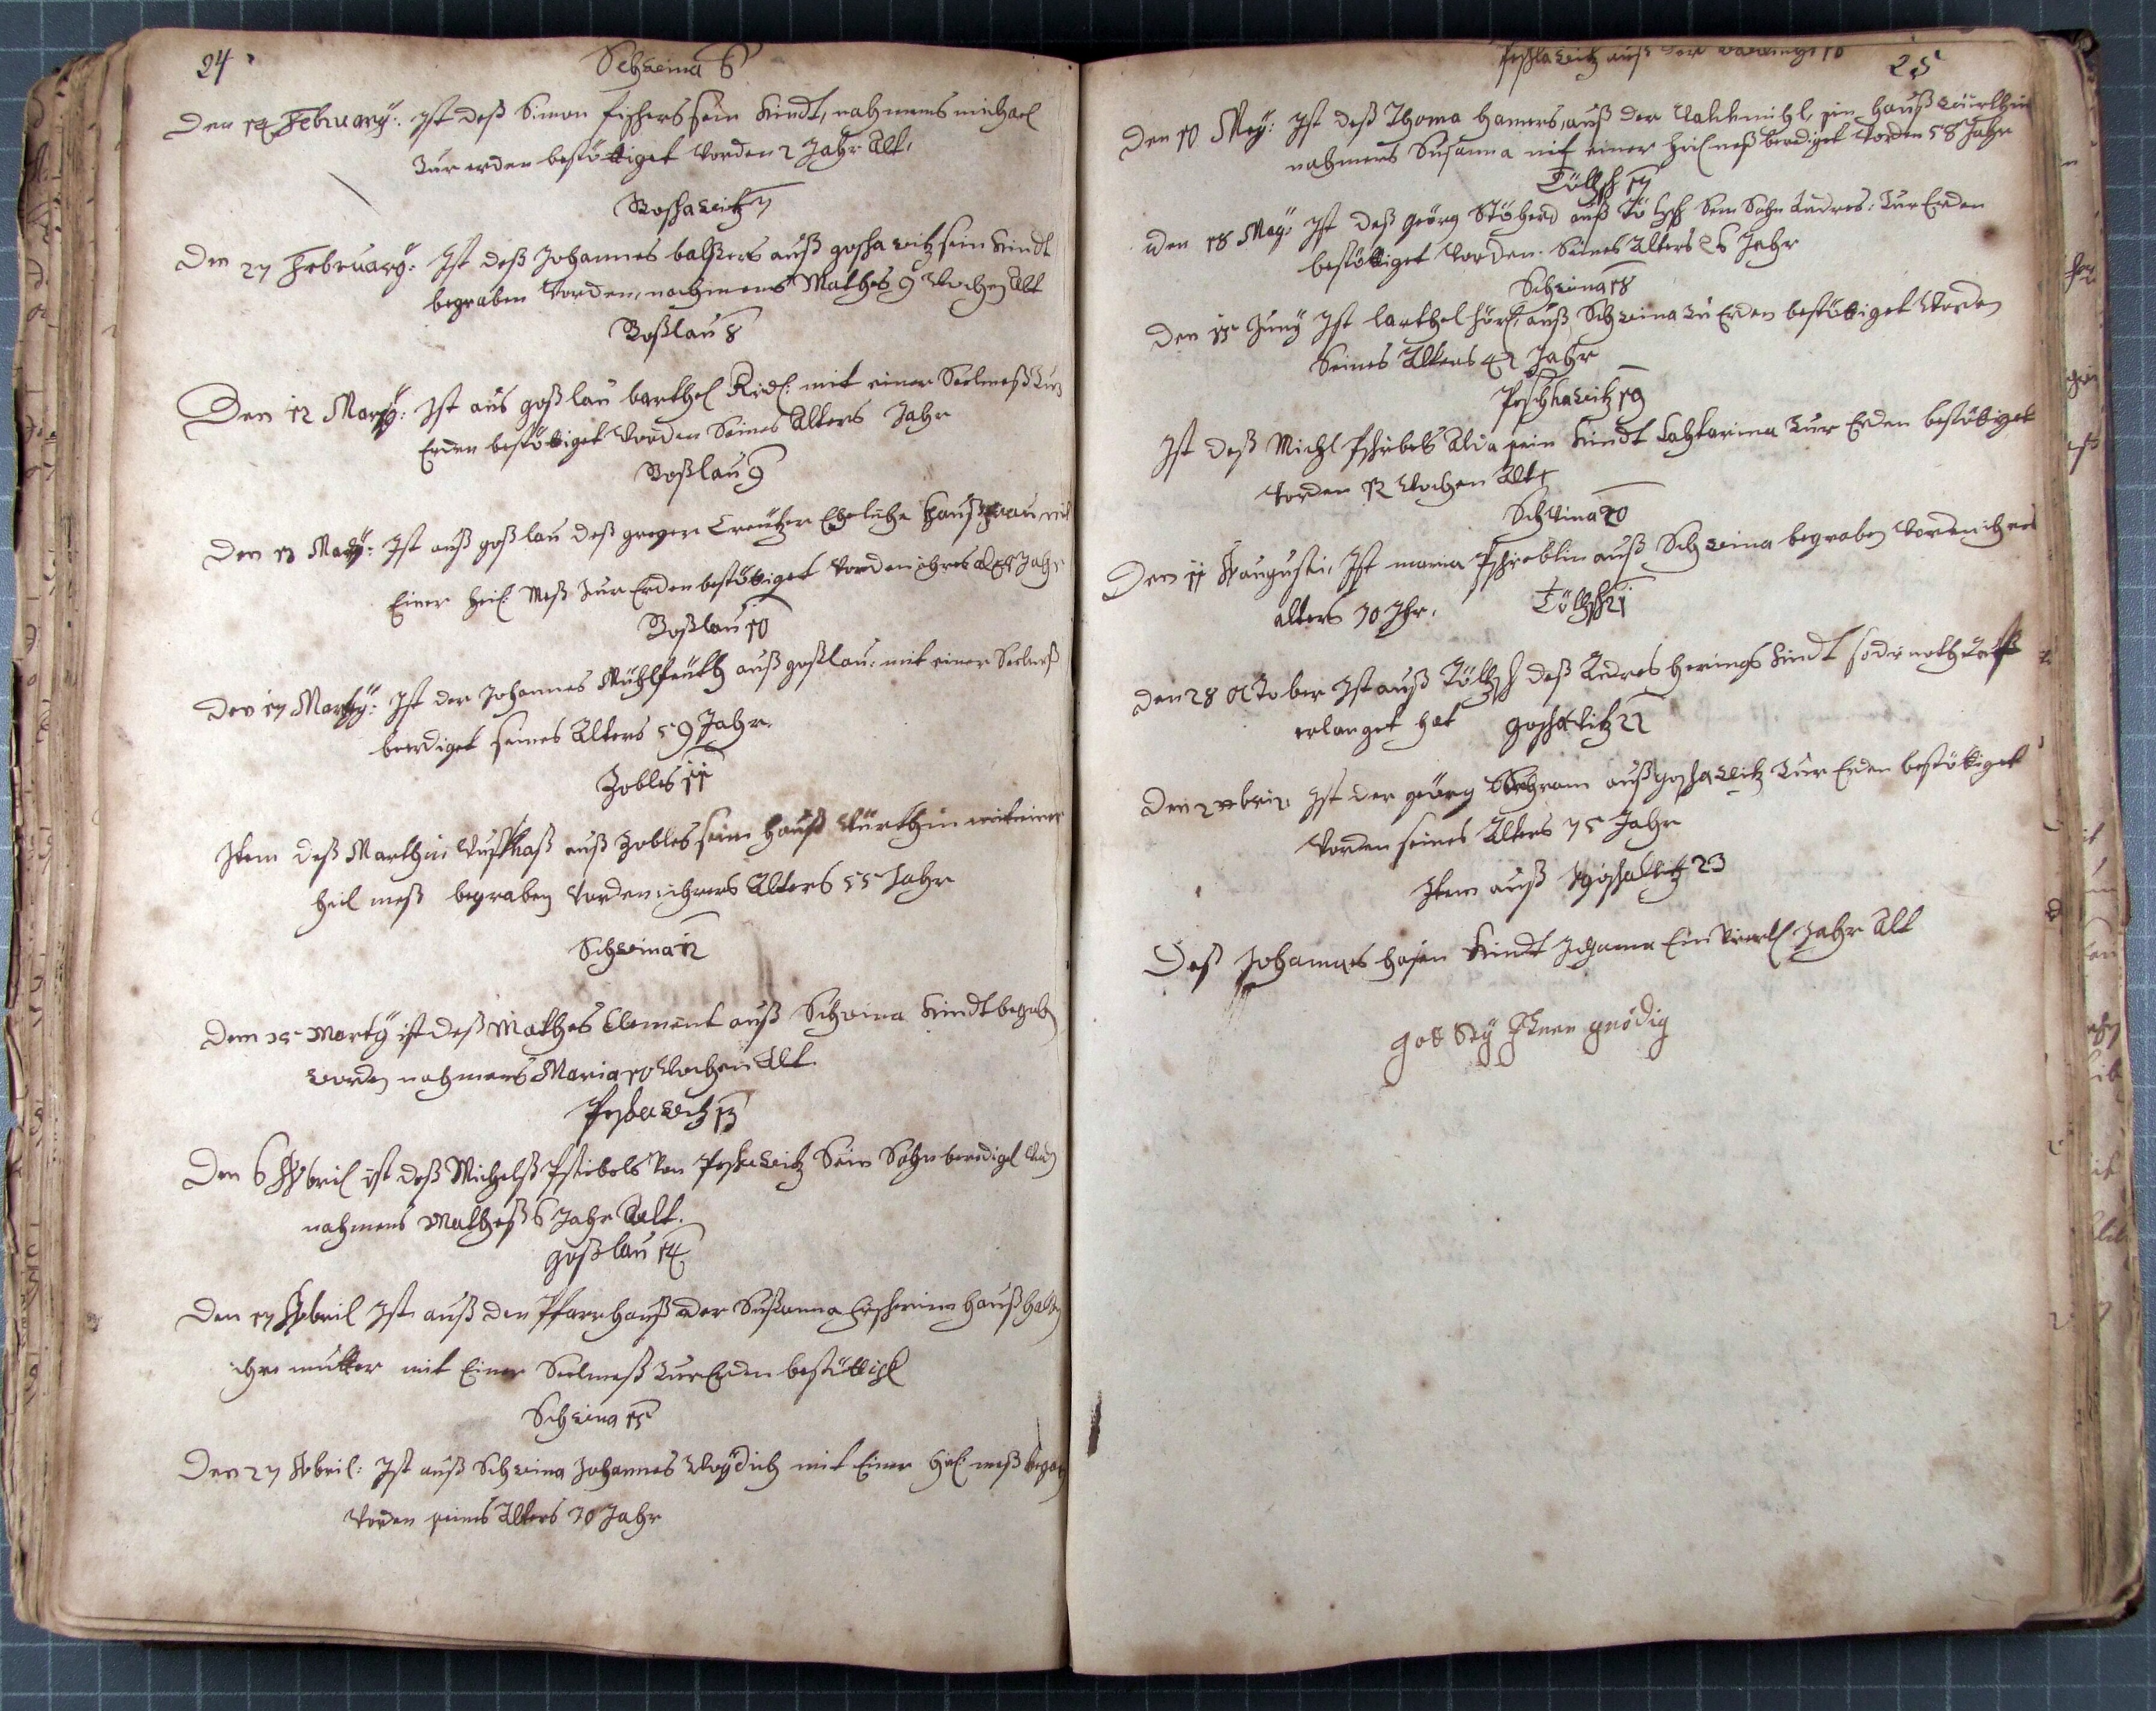 24
Schweina 6
Den 14 February: Ist deß Simon fischers sein Kindt, nahmens michael
Zur erden bestöttiget worden 2 Jahr Alt.
Goschawitz 7
Den 27 February: Ist deß Johannes balßers auß goschawitz sein Kindt
begraben worden, nahmens Mathes 9 Wochen Alt
Goßlau 8
Den 12 Marty: Ist aus goßlau barthel Ridl: mit einer Seelmeß Zur
Erden bestöttiget worden Seines Alters Jahr
Goßlau 9
Den 13 Marty: Ist auß goßlau deß greger Creützer Eheliche Haußfrau mit
Einer heil: Meß Zur Erden bestöttiget worden ihres Jahr
Goßlau 10
Den 17 Marty: Ist der Johannes Mühlfeüth auß goßlau: mit einer Seelmeß
beerdiget seines Alters 59 Jahr.
Zobles 11
Item deß Marthin auß Zobles sein hauß Würthin mit einer
heil meß begraben worden ihres Alters 55 Jahr
Schweina 12
Den 25 Marty ist deß Mathes Clement auß Schweina Kindt begraben
worden nahmens Maria 10 Wochen Alt.
Peschawitz 13
Den 6 Abril ist deß Michelß Pschibels Von Peschawitz Sein Sohn beerdiget
nahmens Matheß 6 Jahr Alt.
goßlau 14
Den 17 Abril Ist auß den Pfarrhauß der Susanna haußhalterin
ihre mutter mit Einer Seelmeß Zur Erden bestöttigt
Schweina 15
Den 27 Abril: Ist auß Schweina Johannes Woydich mit Einer heil: meß begraben
worden seines Alters 70 Jahr
25
Peschawitz auß der 16
Den 10 May: Ist deß Thoma hamers, auß der Walkmühl, sein haußwürthin
nahmens Susanna mit einer heil meß beerdiget worden 58 Jahr
Töltsch 17
den 18 May: Ist deß Geörg Stöherd auß Töltsch Sein Sohn Andres: Zur Erden
bestöttiget worden. Seines Alters 26 Jahr
Schweina 18
Den 15 Juny Ist barthel auß Schweina Zu Erden bestöttiget worden
Seines Alters 42 Jahr
Peschhawitz 19
Ist deß Michl Pschibels sein Kindt Catharina Zur Erden bestöttiget
worden 12 Wochen Alt
Schweina 20
Den 11 augusti, Ist maria Pschieblin auß Schweina begraben worden ihres
alters 70 Jhr.
Töltsch 21
den 28 October Ist auß Töltsch deß Andres herings Kindt so die nothtauff
erlanget hat
goschawitz 22
Den 2 Ist der geörg auß goschawitz Zur Erden bestöttiget
worden seines Alters 75 Jahr
Item auß goschawitz 23
Deß Johannes hasen Kindt Johanna Ein Viertl Jahr Alt
gott Sey Ihnen gnödig